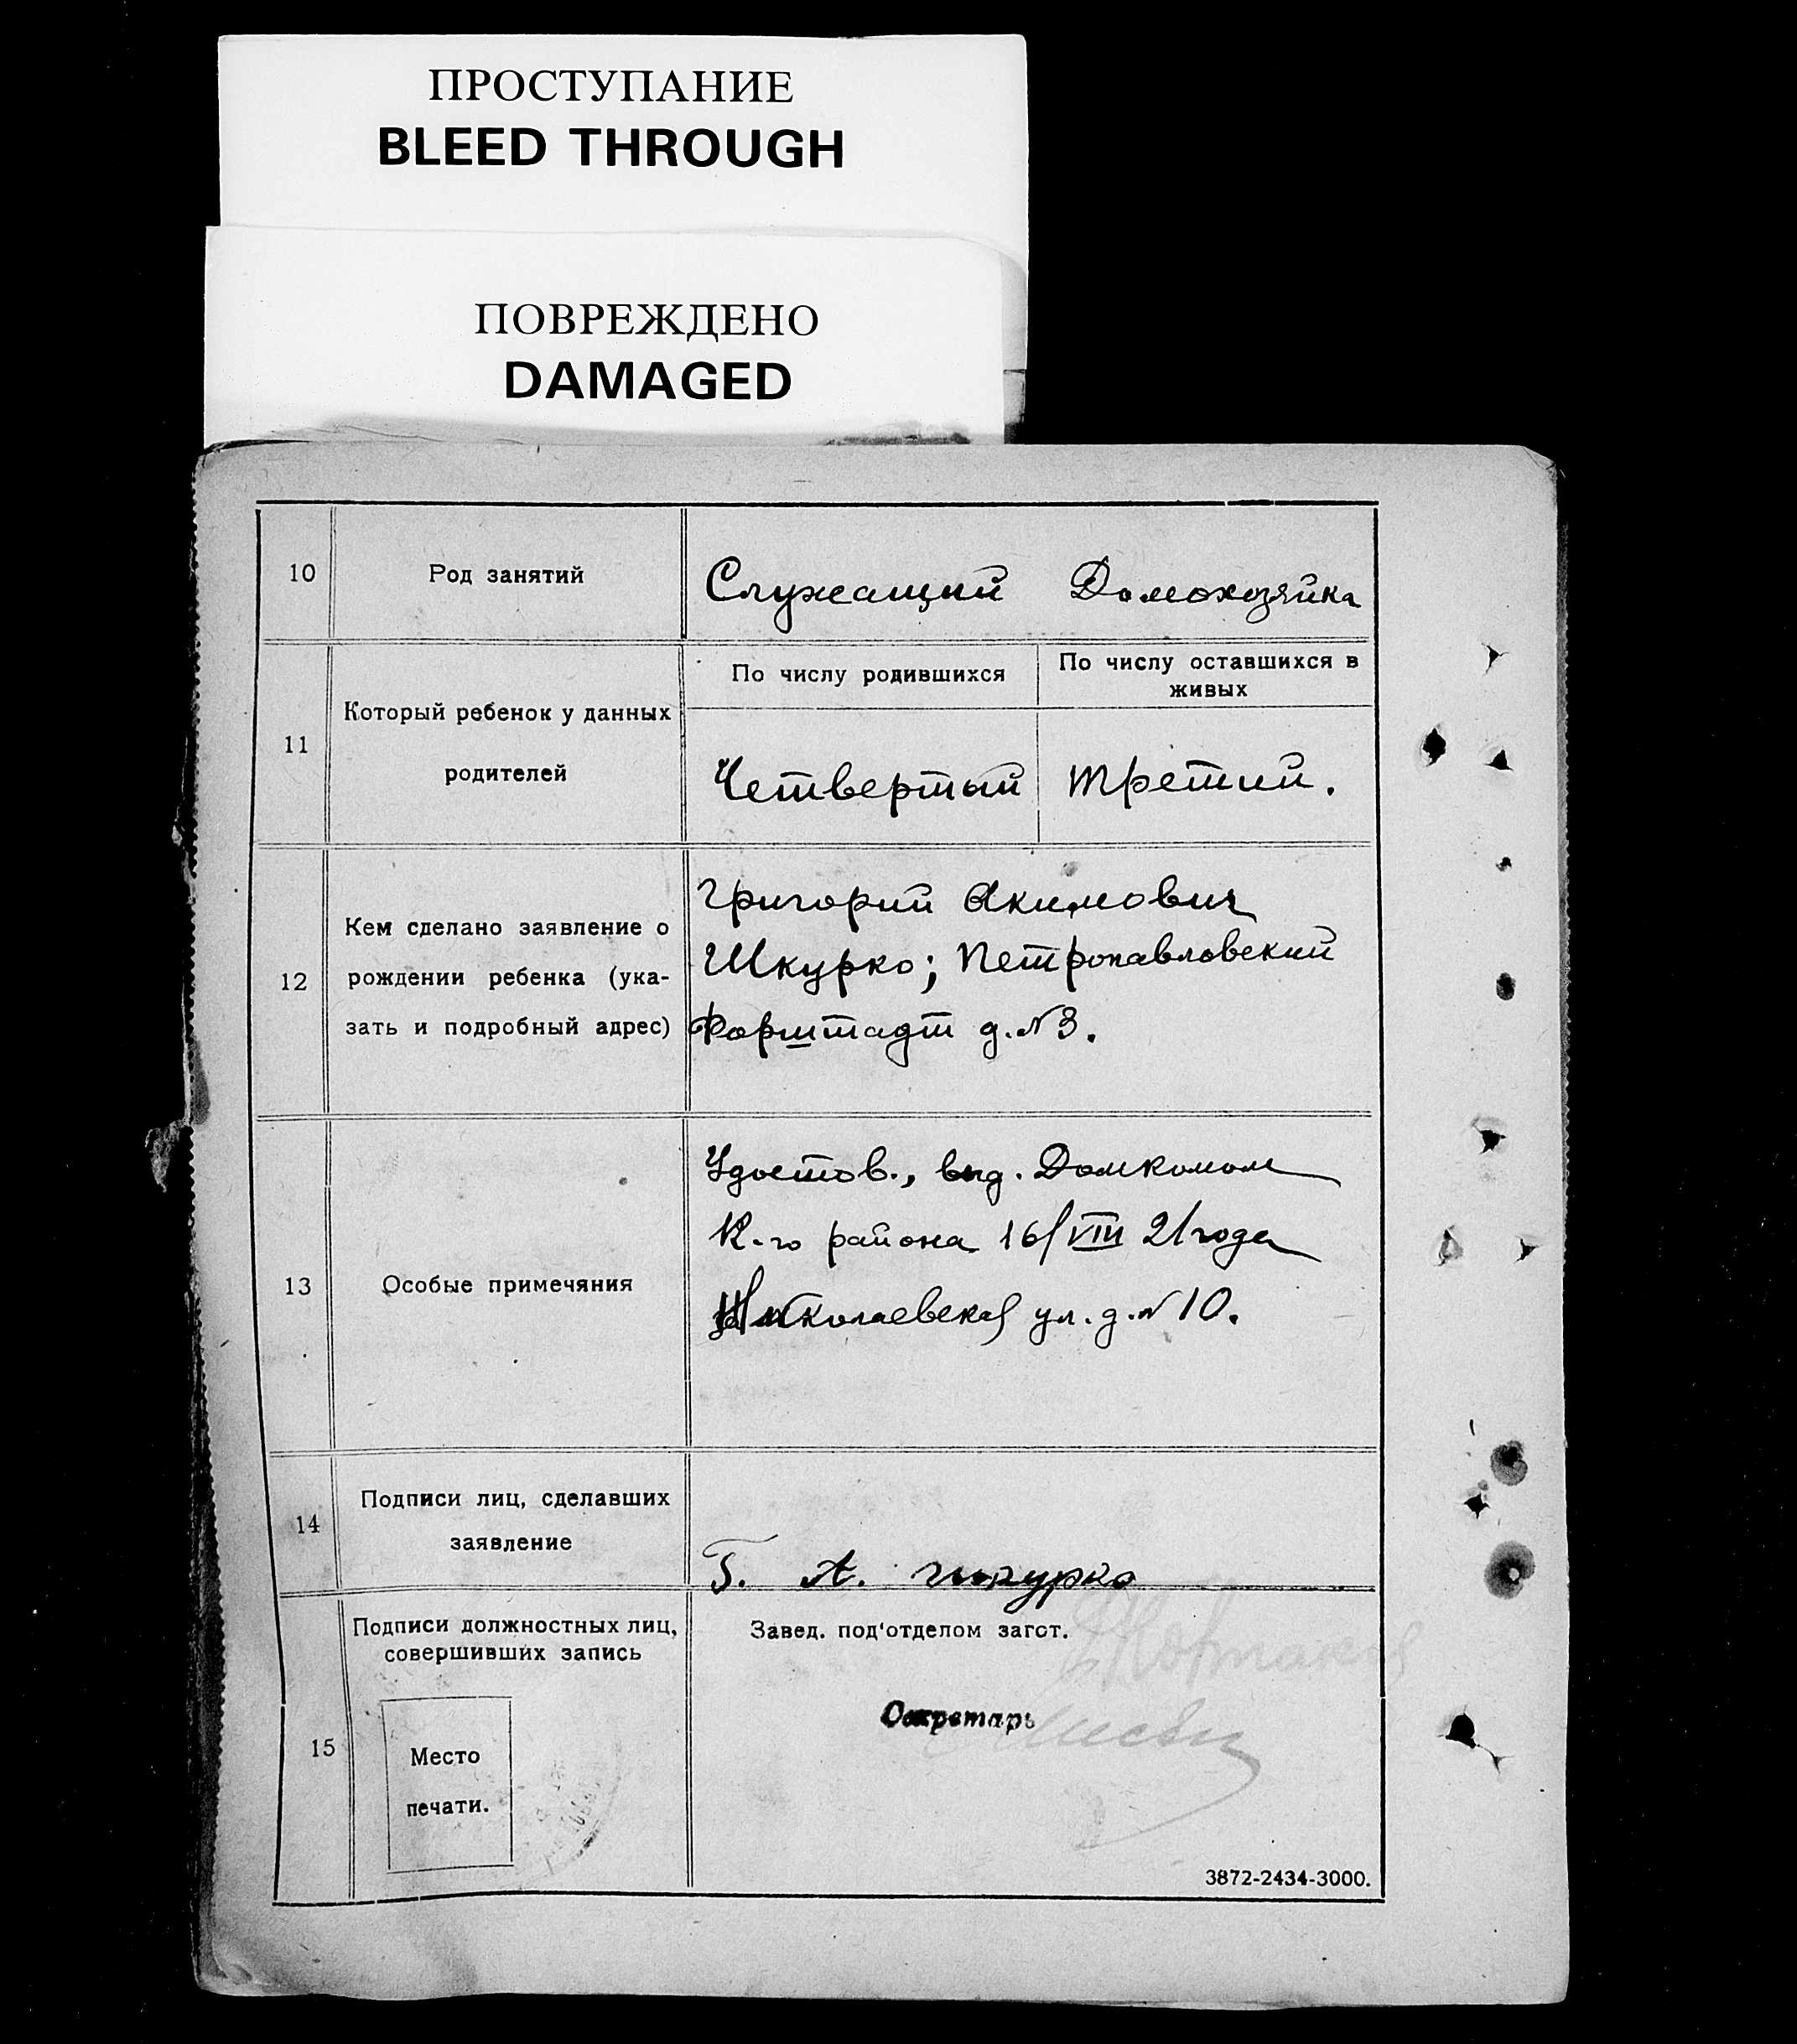 ПРОСТУПАНИЕ
BLEED THROUGH
ПОВРЕЖДЕНО
DAMAGED
10
Род занятий
Служащий Домохозяйка
11
Который ребенок у данных
родителей
По числу родившихся
По числу оставшихся в
живых
Четвертый
Третий.
12
Кем сделано заявление о
рождении ребенка (ука-
зать и подробный адрес)
Григорий Акимович
Шкурко; Петропавловский
Форштадт д. №3.
13
Особые примечяния
Удостов., выд. Домкомом
К-го района 16/VIII 21 года
Николаевская ул. д. №10.
14
Подписи лиц, сделавших
заявление
Г. А. Шкурко
15
Подписи должностных лиц,
совершивших запись
Место
печати.
Завед. под'отделом загст.
Секретарь
3872-2434-3000.